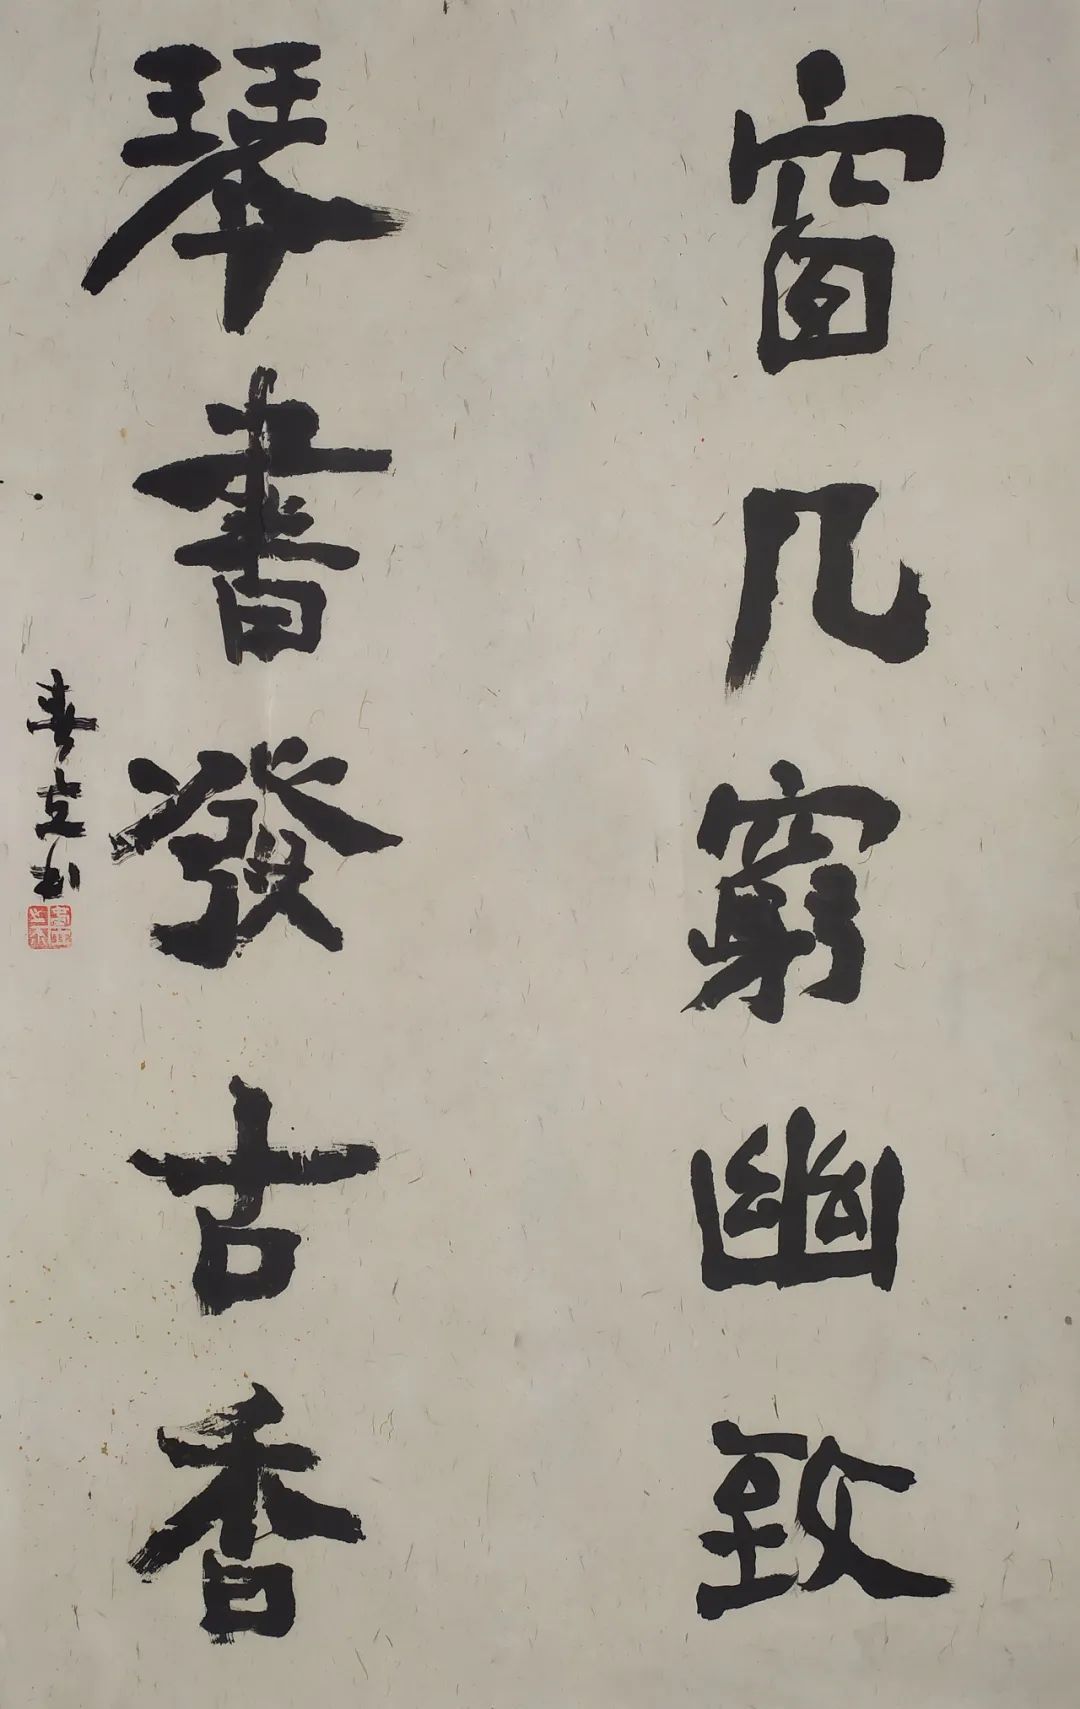 窗几窮幽致
琴書發古香